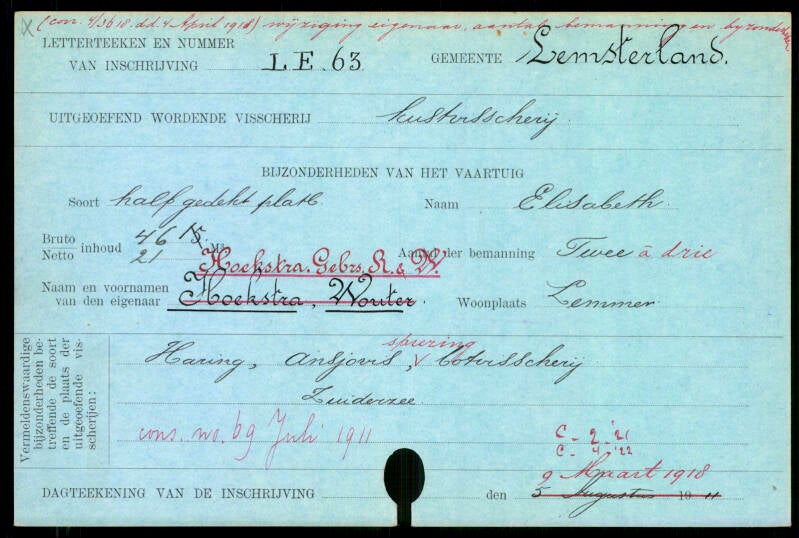 (con. 4/3618. dd. 4 April 1918) wijziging eigenaar, aantal bemanning en byzonderheden
LETTERTEEKEN EN NUMMER
VAN INSCHRIJVING L E. 63.
GEMEENTE Lemsterland.
UITGEOEFEND WORDENDE VISSCHERIJ Kustvisscherij
BIJZONDERHEDEN VAN HET VAARTUIG
Soort half gedekt platb Naam Elisabeth.
Bruto 46 15
Netto 21 inhoud M3
Aantal der bemanning Twee à drie
Hoekstra. Gebrs. R. & W.
Naam en voornamen
van den eigenaar Hoekstra, Wouter. Woonplaats Lemmer
Vermeldenswaardige
bijzonderheden be-
treffende de soort
en de plaats der
uitgeoefende vis-
scherijen:
spiering
Haring, ansjovis, V botvisscherij
Zuiderzee.
cons. no. 69 Juli 1911
C - 2 - '21
C - 4 - '22
9 Maart 1918
DAGTEEKENING VAN DE INSCHRIJVING den 5 Augustus 1911